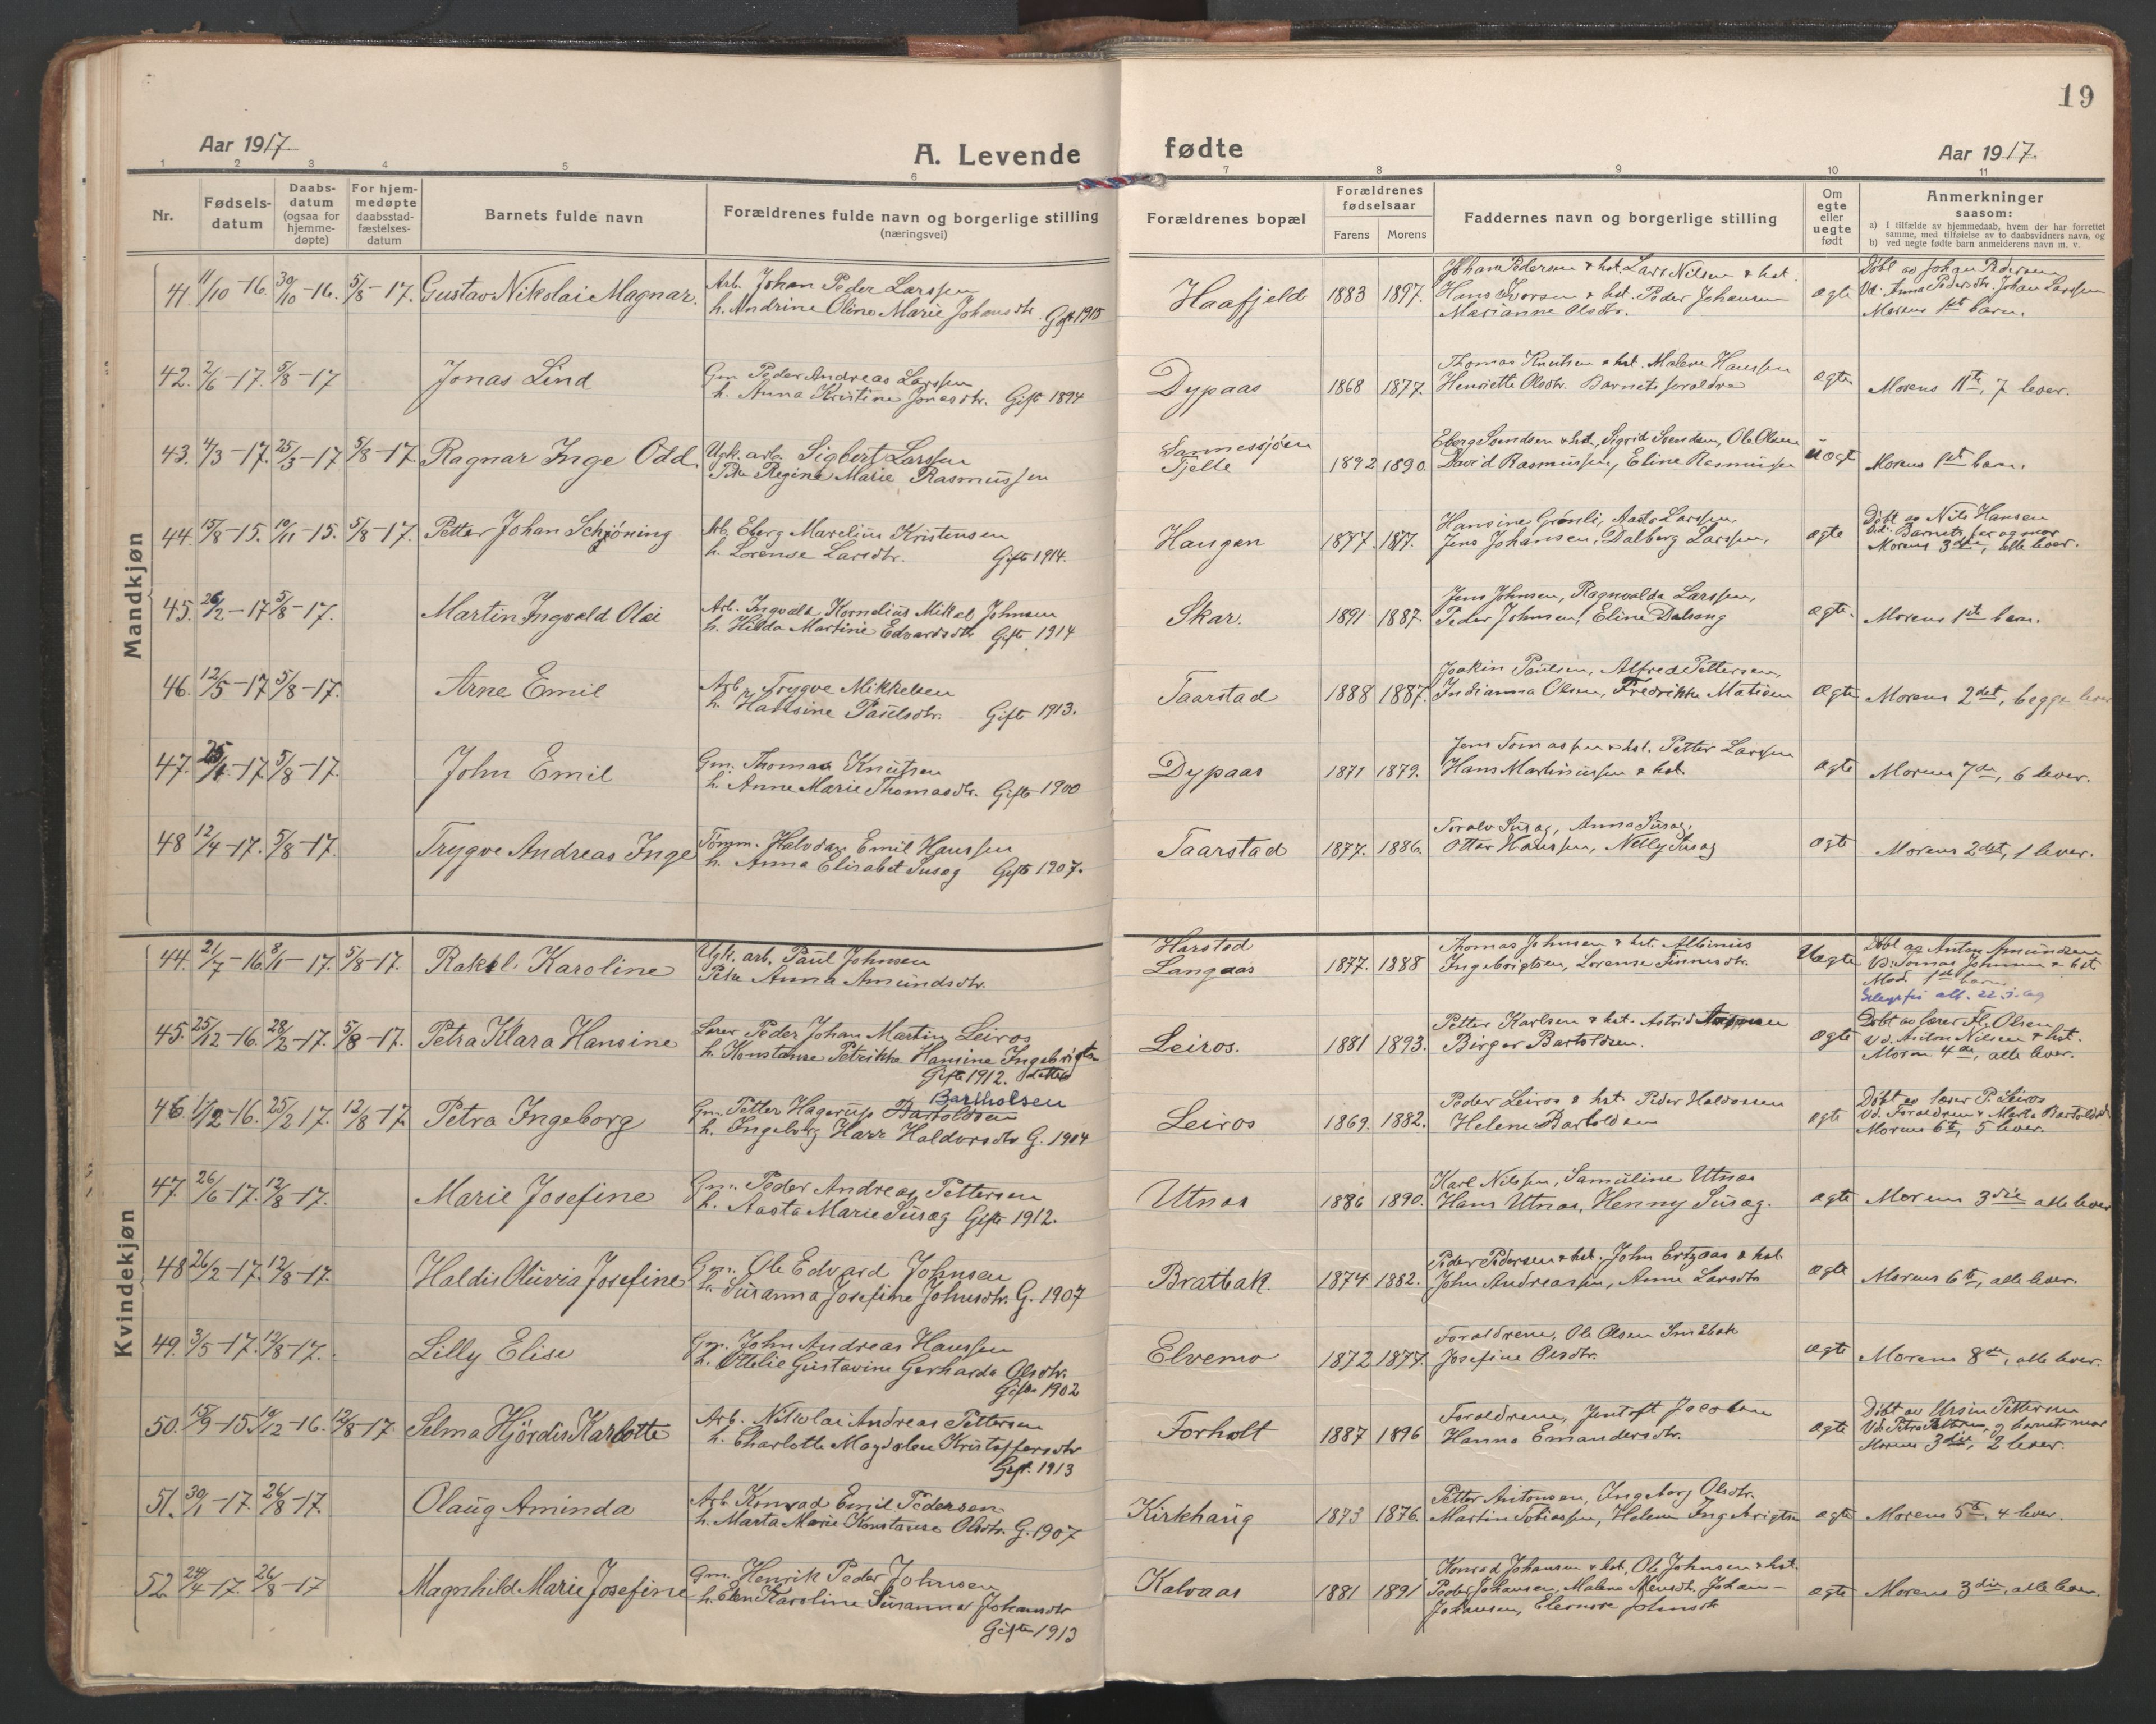 19
Aar 1917
A. Levende
fødte
Aar 1917.
1 2 3 4 5 6 7 8 9 10 11
Nr.
Fødsels-
datum
Daabs-
datum
(ogsaa for
hjemme-
døpte)
For hjem-
medøpte
daabsstad-
fæstelses-
datum
Barnets fulde navn
Forældrenes fulde navn og borgerlige stilling
(næringsvei)
Forældrenes bopæl
Forældrenes
fødselsaar
Farens Morens
Faddernes navn og borgerlige stilling
Om
egte
eller
uegte
født
Anmerkninger
saasom:
a) I tilfælde av hjemmedaab, hvem der har forrettet
samme, med tilføielse av to daabsvidners navn, og
b) ved uegte fødte barn anmelderens navn m. v.
Mandkjøn
41. 11/10-16. 30/10-16. 5/8-17. Gustav Nikolai Magnar.
Arb. Johan Peder Larssen
h. Andrine Oline Marie Johansdtr. Gift 1915
Haafjeld 1883 1897.
Johan Pedersen & hst. Lars Nilsen & hst.
Hans Iversen & hst. Peder Johansen
Marianne Olsdtr.
ægte
Døbt av Johan Pedersen
Vd. Anna Pedersdtr. Johan Larssen
Morens 1ste barn.
42. 2/6-17. 5/8-17 Jonas Lind
Gm. Peder Andreas Larssen
h. Anna Kristine Jonasdtr. Gift 1894
Dypaas 1868 1877.
Thomas Knutsen & hst. Malene Hanssen
Henriette Olsdtr. Barnets foraldre
ægte Morens 11te, 7 lever.
43. 4/3-17. 25/3-17 5/8-17 Ragnar Inge Odd
Ugk. arb. Sigbert Larssen
Pike Regine Marie Rasmussen
Sannessjøen
Tjelle 1892 1890.
Eberg Svendsen & hst, Sigrid Svendsen, Ole Olsen
David Rasmussen, Eline Rasmussen
uægt Morens 1ste barn.
44. 15/8-15. 10/11-15. 5/8-17. Petter Johan Schjøning
Arb. Eberg Marelius Kristensen
h. Lorense Larsdtr. Gift 1914.
Haugen 1877. 1877.
Hansine Grønli, Aasta Larssen,
Jens Johansen, Dalberg Larssen,
ægte
Døbt av Nils Hansen
Vid: Barnets far og mor
Morens 3die, alle lever.
45. 26/2-17 5/8-17. Martin Ingvald Olai
Arb. Ingvald Kornelius Mikal Johnsen
h. Hilda Martine Edvardsdtr Gift 1914
Skar. 1891 1887.
Jens Johnsen, Ragnvalda Larssen,
Peder Johnsen, Eline Dalsang
ægte. Morens 1ste barn.
46. 12/5-17 5/8-17. Arne Emil
Arb. Trygve Mikkelsen
h. Hansine Paulsdtr. Gift 1913.
Taarstad 1888 1887.
Joakin Paulsen, Alfred Pettersen,
Indianna Olsen, Fredrikke Matisen
ægte Morens 2det, begge lever
47. 25/4-17 5/8-17. John Emil
Gm. Thomas Knutsen
h. Anne Marie Thomasdtr. Gift 1900
Dypaas 1871 1879.
Jens Tomassen & hst. Petter Larssen
Hans Martinussen & hst.
ægte Morens 7de, 6 lever.
48 12/4-17. 5/8-17. Trygve Andreas Inge
Tømm. Halvdan Emil Hanssen
h. Anna Elisabet Susag Gift 1907.
Taarstad 1877. 1886.
Toralv Susag, Anna Susag,
Ottar Hanssen, Nelly Susag
ægte Morens 2det, 1 lever.
Kvindekjøn
44. 21/7-16 8/1-17. 5/8-17. Rakel Karoline
Ugk. arb. Paul Johnsen
Pike Anna Amundsdtr.
Harstad
Langaas 1877. 1888
Thomas Johnsen & hst. Albinius
Ingebrigtsen, Lorense Finnesdtr.
Uægte
Døbt av Anton Amundsen
Vd: Tomas Johnsen & hst
Mod. 1ste barn
45. 25/12-16. 28/2-17. 5/8-17. Petra Klara Hansine
Lærer Peder Johan Martin Leiros
h. Konstanse Petrikke Hansine Ingebrigts
Gift 1912. datter
Leiros. 1881 1893.
Petter Karlsen & hst. Astrid
Birger Bartoldsen.
ægte
Døbt av lærer Fl. Olsen
Vd. Anton Nilsen & hst.
Moren 4de, alle lever.
46. 17/2-16. 25/2 17. 12/8-17. Petra Ingeborg
Bartholsen
Gm. Petter Hagerup Bartoldsen
h. Ingeborg Harr Haldorsdtr G. 1904
Leiros 1869. 1882.
Peder Leiros & hst. Peder Haldossen
Helene Bartoldsen
ægte
Døbt av lærer P. Leiros
Vd. Forældrene & Marta Bartoldsd
Morens 6te, 5 lever.
47. 26/6-17. 12/8-17. Marie Josefine
Gm. Peder Andreas Pettersen
h. Aasta Marie Susæg Gift 1912.
Utnas 1886 1890.
Karl Nilssen, Samuline Utnas
Hans Utnas, Henny Susæg.
ægte Morens 3die alle lever
48 26/2-17. 12/8-17. Haldis Oluvia Josefine
Gm. Ole Edvard Johnsen
h. Susanna Josefine Johnsdtr. G. 1907
Bratbak. 1874 1882.
Peder Pedersen & hst. John Ertzaas & hst.
John Andreassen, Anne Larsdtr
ægte Morens 6te, alle lever.
49. 3/5-17. 12/8-17. Lilly Elise
Gm. John Andreas Hanssen
h. Otelie Gustavine Gerharda Olsdtr.
Gift 1902
Elvemo 1872 1877.
Foraldrene, Ole Olsen Småbak
Josefine Olsdtr.
ægte Morens 8de, alle lever.
50. 15/9-15 10/12-16. 12/8-17. Selma Hjördis Karlotte
Arb. Nikolai Andreas Pettersen
h. Charlotte Magdalen Kristoffersdtr
Gift. 1913
Forholt 1887 1896
Foraldrene, Jentoft Jacobsen
Hanna Emandersdtr.
ægte
Døbt av Ursin Pettersen
Vd: Petra Pettersen, og barnets mor
Morens 3die, 2 lever.
51. 30/1-17. 26/8-17. Olaug Aminda
Arb. Konrad Emil Pedersen
h. Marta Marie Konstanse Olsdtr. G. 1907
Kirkhaug 1873 1876.
Petter Antonsen, Ingeborg Olsdtr.
Martin Tobiassen, Helene Ingebrigtsen
ægte Morens 5te, 4 lever.
52 24/4-17. 26/8-17 Magnhild Marie Josefine
Gm. Henrik Peder Johnsen
h. Elen Karoline Susanna Johansdtr
Gift 1913
Kalvaas 1881 1891
Konrad Johansen & hst, Ole Johnsen & hst.
Peder Johansen, Malene Jensdtr, Johan-
Johansen, Eleonore Johnsdtr
ægte Morens 3die, alle lever.